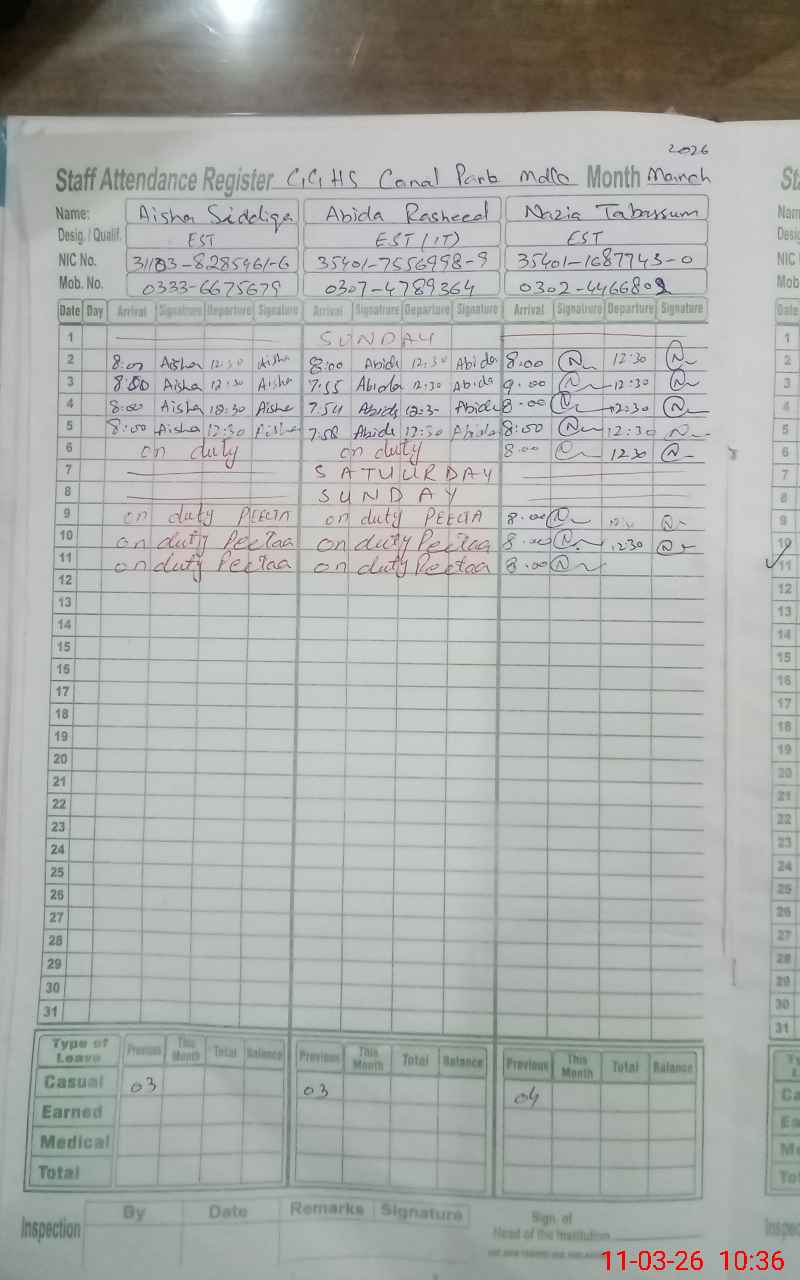 2026
Staff Attendance Register G,G,HS Canal Park mdk Month March
Name: Aisha Siddiqa Abida Rasheed Nazia Tabassum
Desig. / Qualif. EST EST (IT) EST
NIC No. 31103-8285461-6 35401-7556998-9 35401-1687743-0
Mob. No. 0333-6675679 0307-4789364 0302-4466802
Date Day Arrival Signature Departure Signature Arrival Signature Departure Signature Arrival Signature Departure Signature
1 SUNDAY
2 8:00 Aisha 12:30 Aisha 8:00 Abida 12:30 Abida 8:00 12:30
3 8:00 Aisha 12:30 Aisha 7.55 Abida 12.30 Abida 12:30
4 8:00 Aisha 12:30 Aisha 7.54 Abida 12:3- Abida 8-00 12:30
5 8:00 Aisha 12:30 Aisha 7.58 Abida 12:30 Abida 8:00 12:30
6 on duty on duty 8.00 1230
7 SATUURDAY
8 SUNDAY
9 on duty PEECTA on duty PEECTA 8.00
10 on duty Peetaa on duty Peetaa 8.00 1230
11 on duty Peetaa on duty Peetaa 8.00
12
13
14
15
16
17
18
19
20
21
22
23
24
25
26
27
28
29
30
31
Type of Leave Previous This Month Total Balance Previous This Month Total Balance Previous This Month Total Balance
Casual 03 03 04
Earned
Medical
Total
Inspection By Date Remarks Signature Sign. of Head of the Institution
11-03-26 10:36